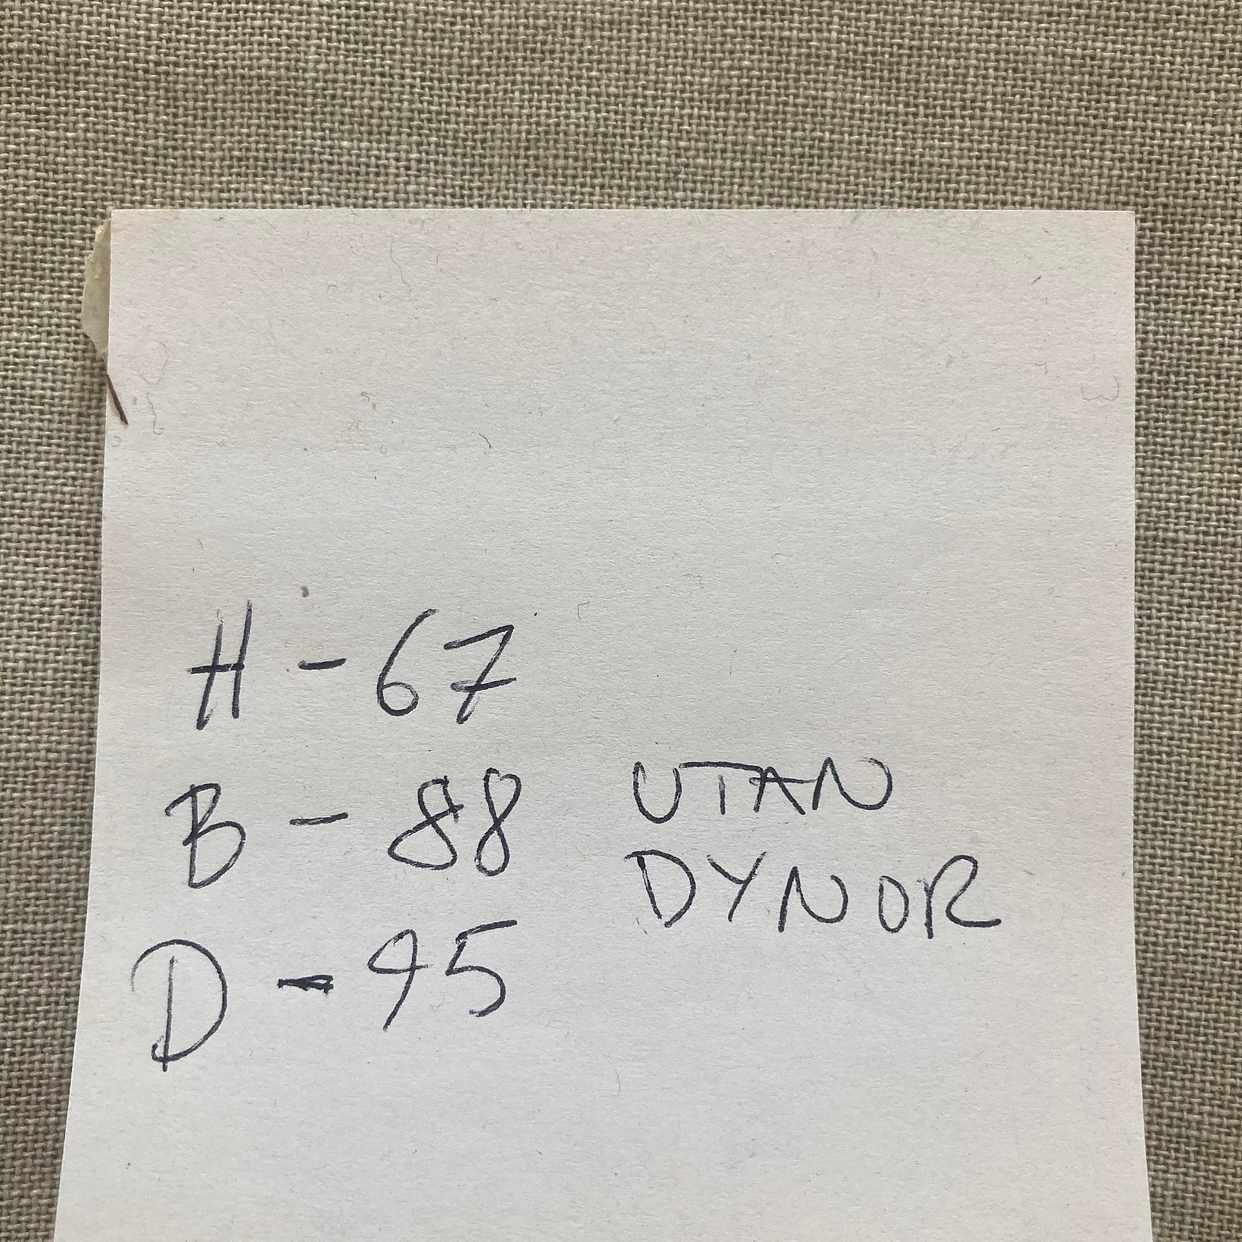 H - 67
B - 88
D - 95
UTAN
DYNOR